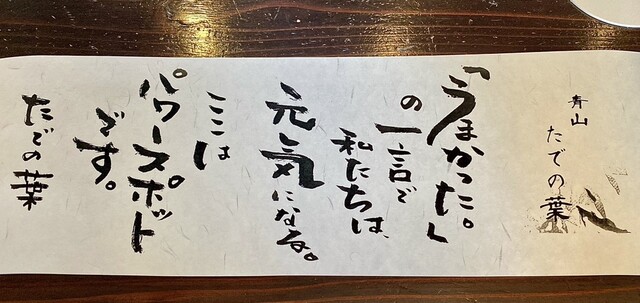 青山
たでの葉
「うまかった。」
の一言で
私たちは、
元気になる。
ここは
パワースポット
です。
たでの葉